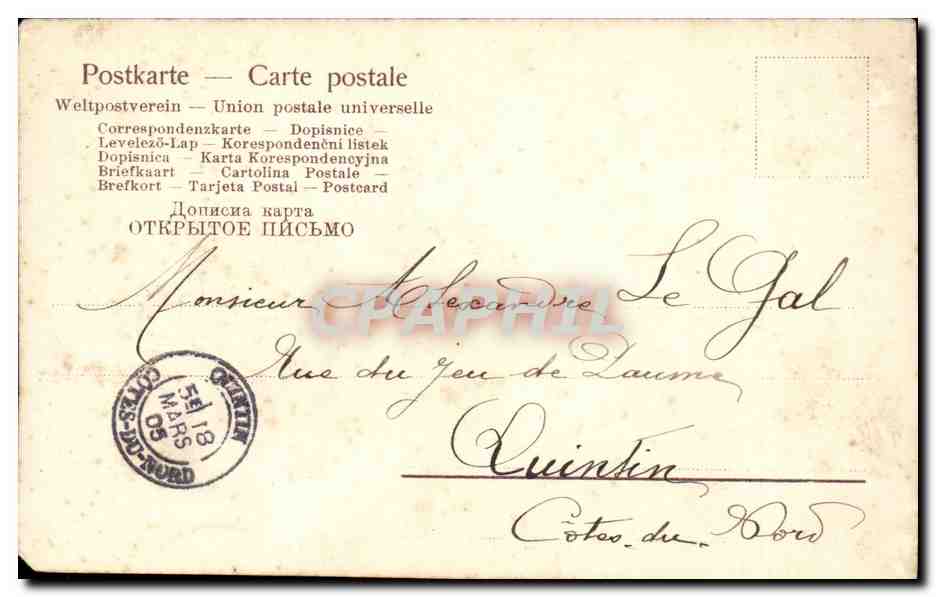 Postkarte — Carte postale
Weltpostverein — Union postale universelle
Correspondenzkarte — Dopisnice —
Levelező-Lap — Korespondenční listek
Dopisnica — Karta Korespondencyjna
Briefkaart — Cartolina Postale —
Brefkort — Tarjeta Postal — Postcard
Дописна карта
ОТКРЫТОЕ ПИСЬМО
Monsieur Alexandre Le Gal
CPAPHIL
Rue du Jeu de Paume
Quintin
Côtes-du-Nord
QUINTIN
5E 18
MARS
05
COTES-DU-NORD